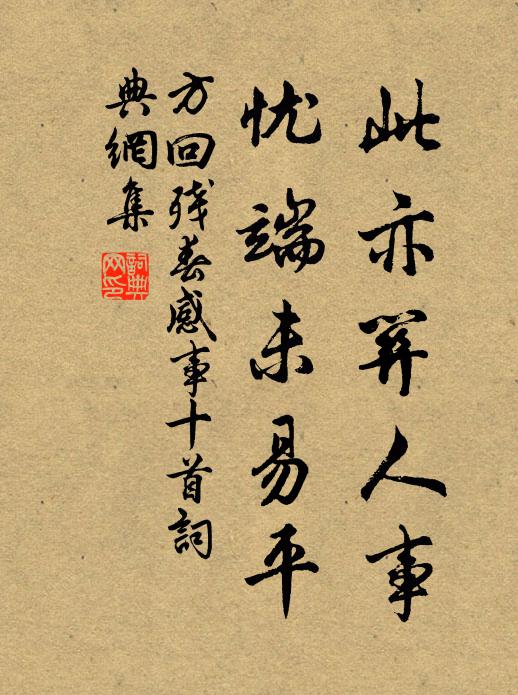 此亦关人事
忧端未易平
方回残春感事十首詞
典網集
詞典
网印